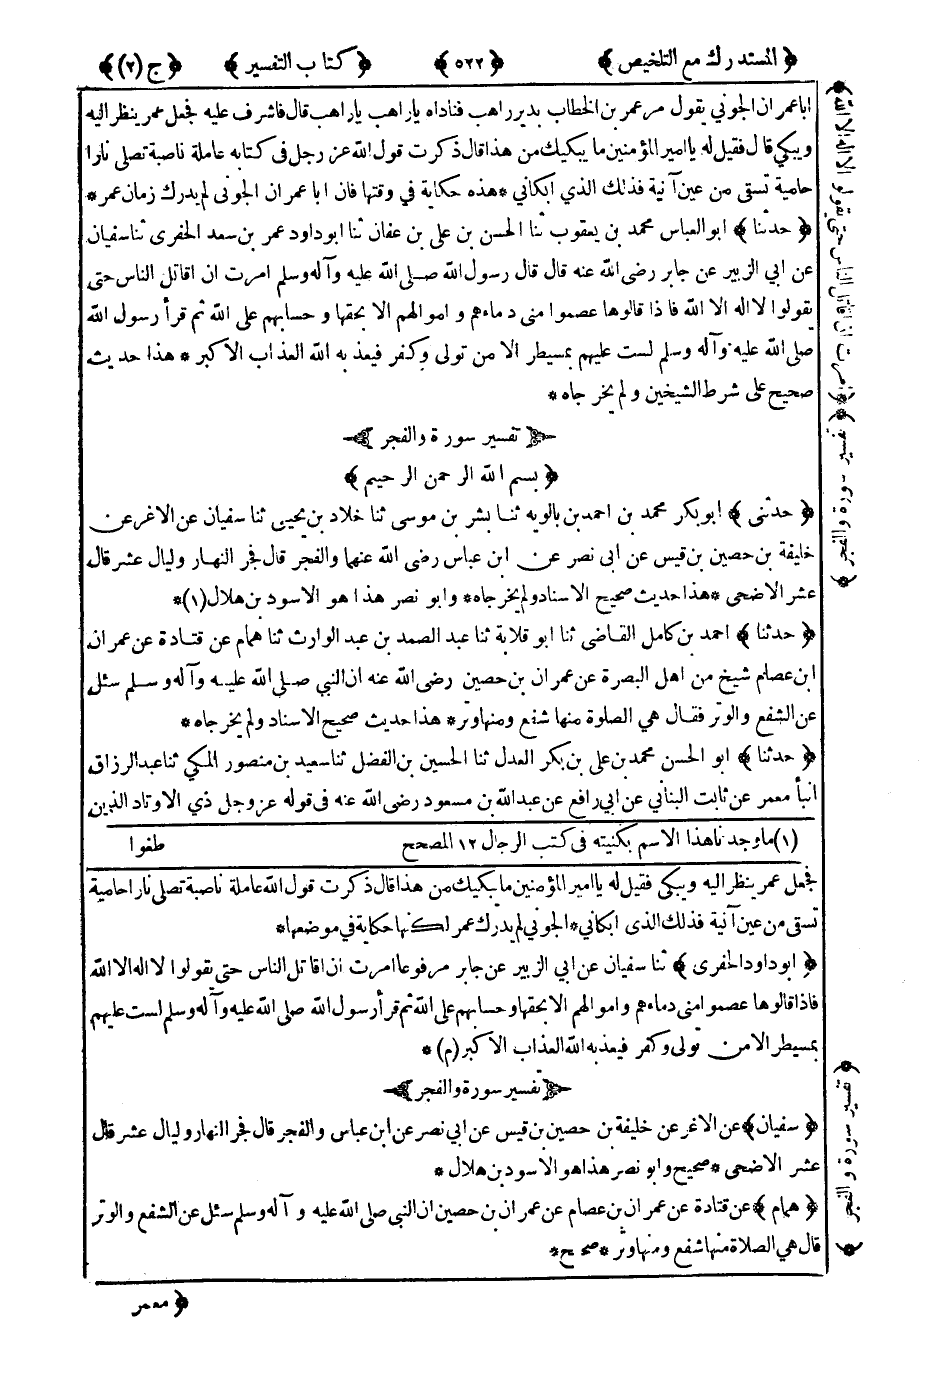 ﴿ المستدرك مع التلخيص ﴾ ﴿ ٥٢٢ ﴾ ﴿ كتاب التفسير ﴾ ﴿ ج (٢) ﴾
اباعمران الجوني يقول مر عمر بن الخطاب بدير راهب فناداه ياراهب ياراهب قال فاشرف عليه فجعل عمر ينظر اليه
ويبكي قال فقيل له يا امير المؤمنين ما يبكيك من هذا قال ذكرت قول الله عز وجل في كتابه عاملة ناصبة تصلى نارا
حامية تسقى من عين آنية فذلك الذي ابكاني * هذه حكاية في وقتها فان ابا عمران الجوني لم يدرك زمان عمر *
﴿ حدثنا ﴾ ابو العباس محمد بن يعقوب ثنا الحسن بن علي بن عفان ثنا ابو داود عمر بن سعد الحفري ثنا سفيان
عن ابي الزبير عن جابر رضى الله عنه قال قال رسول الله صلى الله عليه وآله وسلم امرت ان اقاتل الناس حتى
يقولوا لا اله الا الله فاذا قالوها عصموا منى دماءهم و اموالهم الا بحقها و حسابهم على الله ثم قرأ رسول الله
صلى الله عليه وآله وسلم لست عليهم بمسيطر الا من تولى وكفر فيعذ به الله العذاب الاكبر * هذا حديث
صحيح على شرط الشيخين ولم يخرجاه *
﴿ تفسير سورة والفجر ﴾
﴿ بسم الله الرحمن الرحيم ﴾
﴿ حدثنى ﴾ ابو بكر محمد بن احمد بن بالويه ثنا بشر بن موسى ثنا خلاد بن يحيى ثنا سفيان عن الاغر عن
خليفة بن حصين بن قيس عن ابى نصر عن ابن عباس رضى الله عنهما والفجر قال فجر النهار وليال عشر قال
عشر الاضحى * هذا حديث صحيح الاسناد ولم يخرجاه * وابو نصر هذا هو الاسود بن هلال (١) *
﴿ حدثنا ﴾ احمد بن كامل القاضى ثنا ابو قلابة ثنا عبد الصمد بن عبد الوارث ثنا همام عن قتادة عن عمران
ابن عصام شيخ من اهل البصرة عن عمران بن حصين رضى الله عنه ان النبي صلى الله عليه وآله وسلم سئل
عن الشفع والوتر فقال هي الصلوة منها شفع ومنها وتر * هذا حديث صحيح الاسناد ولم يخرجاه *
﴿ حدثنا ﴾ ابو الحسن محمد بن على بن بكر العدل ثنا الحسين بن الفضل ثنا سعيد بن منصور المكي ثنا عبد الرزاق
انبأ معمر عن ثابت البناني عن ابي رافع عن عبد الله بن مسعود رضى الله عنه في قوله عز وجل ذي الاوتاد الذين
(١) ما وجدنا هذا الاسم بكنيته في كتب الرجال ١٢ المصحح طغوا
فجعل عمر ينظر اليه ويبكي فقيل له يا امير المؤمنين ما يبكيك من هذا قال ذكرت قول الله عاملة ناصبة تصلى نارا حامية
تسقى من عين آنية فذلك الذى ابكاني * الجوني لم يدرك عمر لكنها حكاية في موضعها *
﴿ ابو داود الحفرى ﴾ ثنا سفيان عن ابي الزبير عن جابر مرفوعا امرت ان اقاتل الناس حتى يقولوا لا اله الا الله
فاذا قالوها عصموا منى دماءهم واموالهم الا بحقها وحسابهم على الله ثم قرأ رسول الله صلى الله عليه وآله وسلم لست عليهم
بمسيطر الا من تولى وكفر فيعذبه الله العذاب الاكبر (م) *
﴿ تفسير سورة والفجر ﴾
﴿ سفيان ﴾ عن الاغر عن خليفة بن حصين بن قيس عن ابي نصر عن ابن عباس والفجر قال فجر النهار وليال عشر قال
عشر الاضحى * صحيح وابو نصر هذا هو الاسود بن هلال *
﴿ همام ﴾ عن قتادة عن عمران بن عصام عن عمران بن حصين ان النبي صلى الله عليه وآله وسلم سئل عن الشفع والوتر
قال هي الصلاة منها شفع ومنها وتر * صحيح *
﴿ معمر
﴿ امرت ان اقاتل الناس حتى يقولوا لا اله الا الله ﴾
﴿ تفسير سورة والفجر ﴾
﴿ تفسير سورة والفجر ﴾